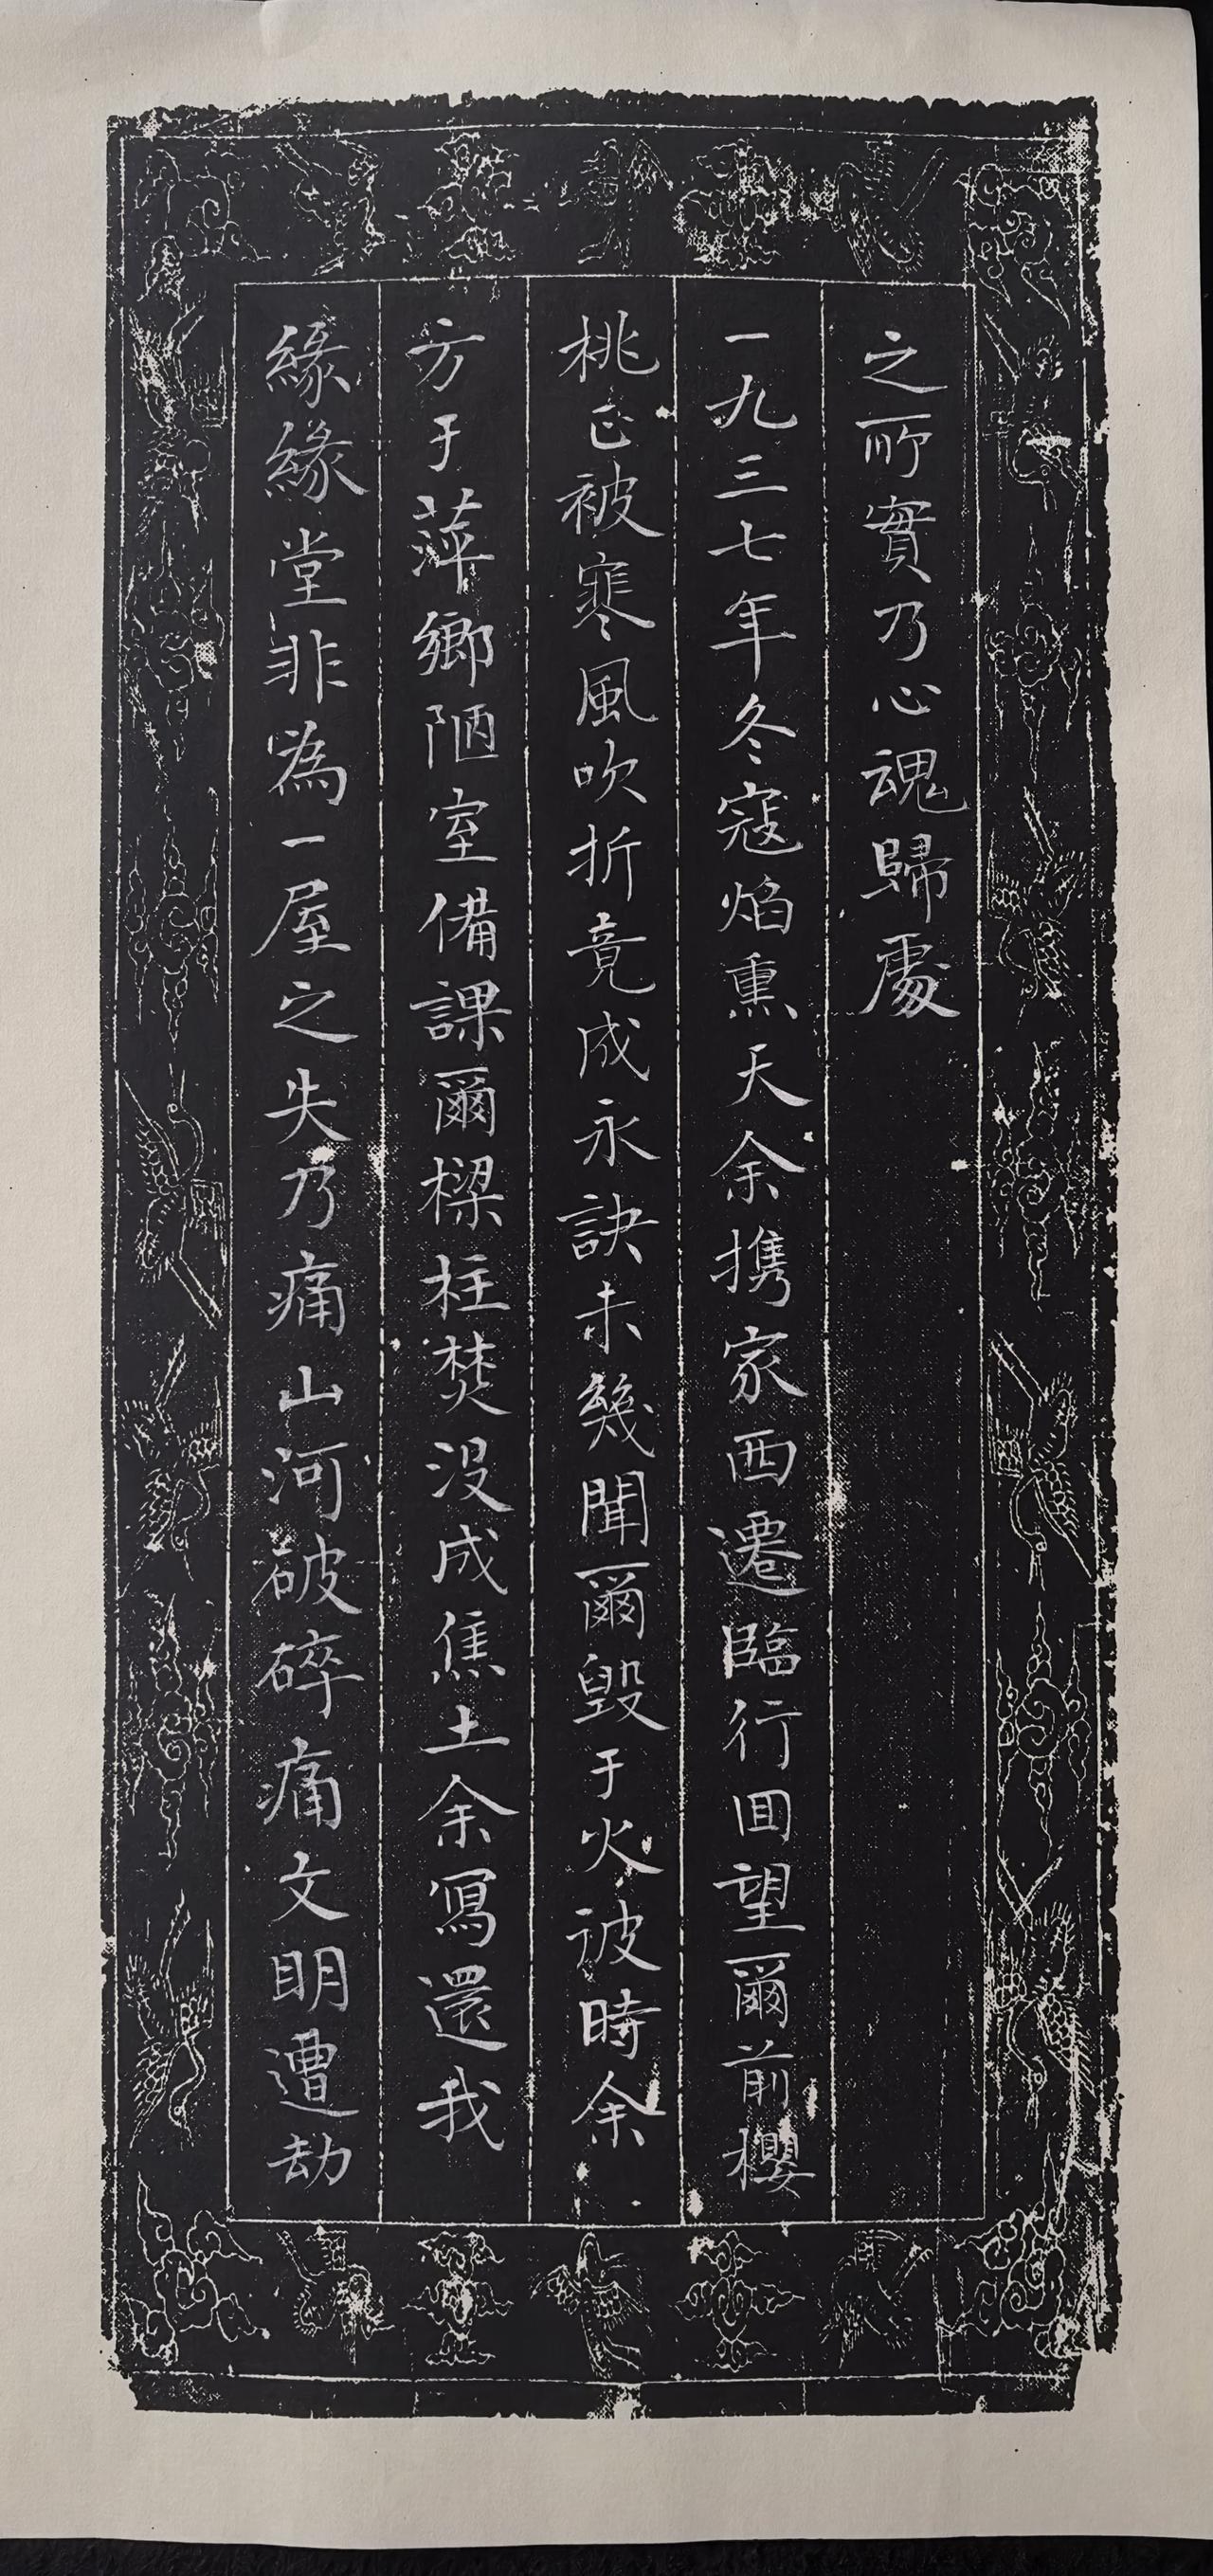 之所實乃心魂歸處
一九三七年冬寇焰熏天余携家西遷臨行回望爾前櫻
桃已被寒風吹折竟成永訣未幾聞爾毀于火彼時余
方于萍鄉陋室備課爾樑柱焚沒成焦土余寫還我
緣緣堂非為一屋之失乃痛山河破碎痛文明遭劫